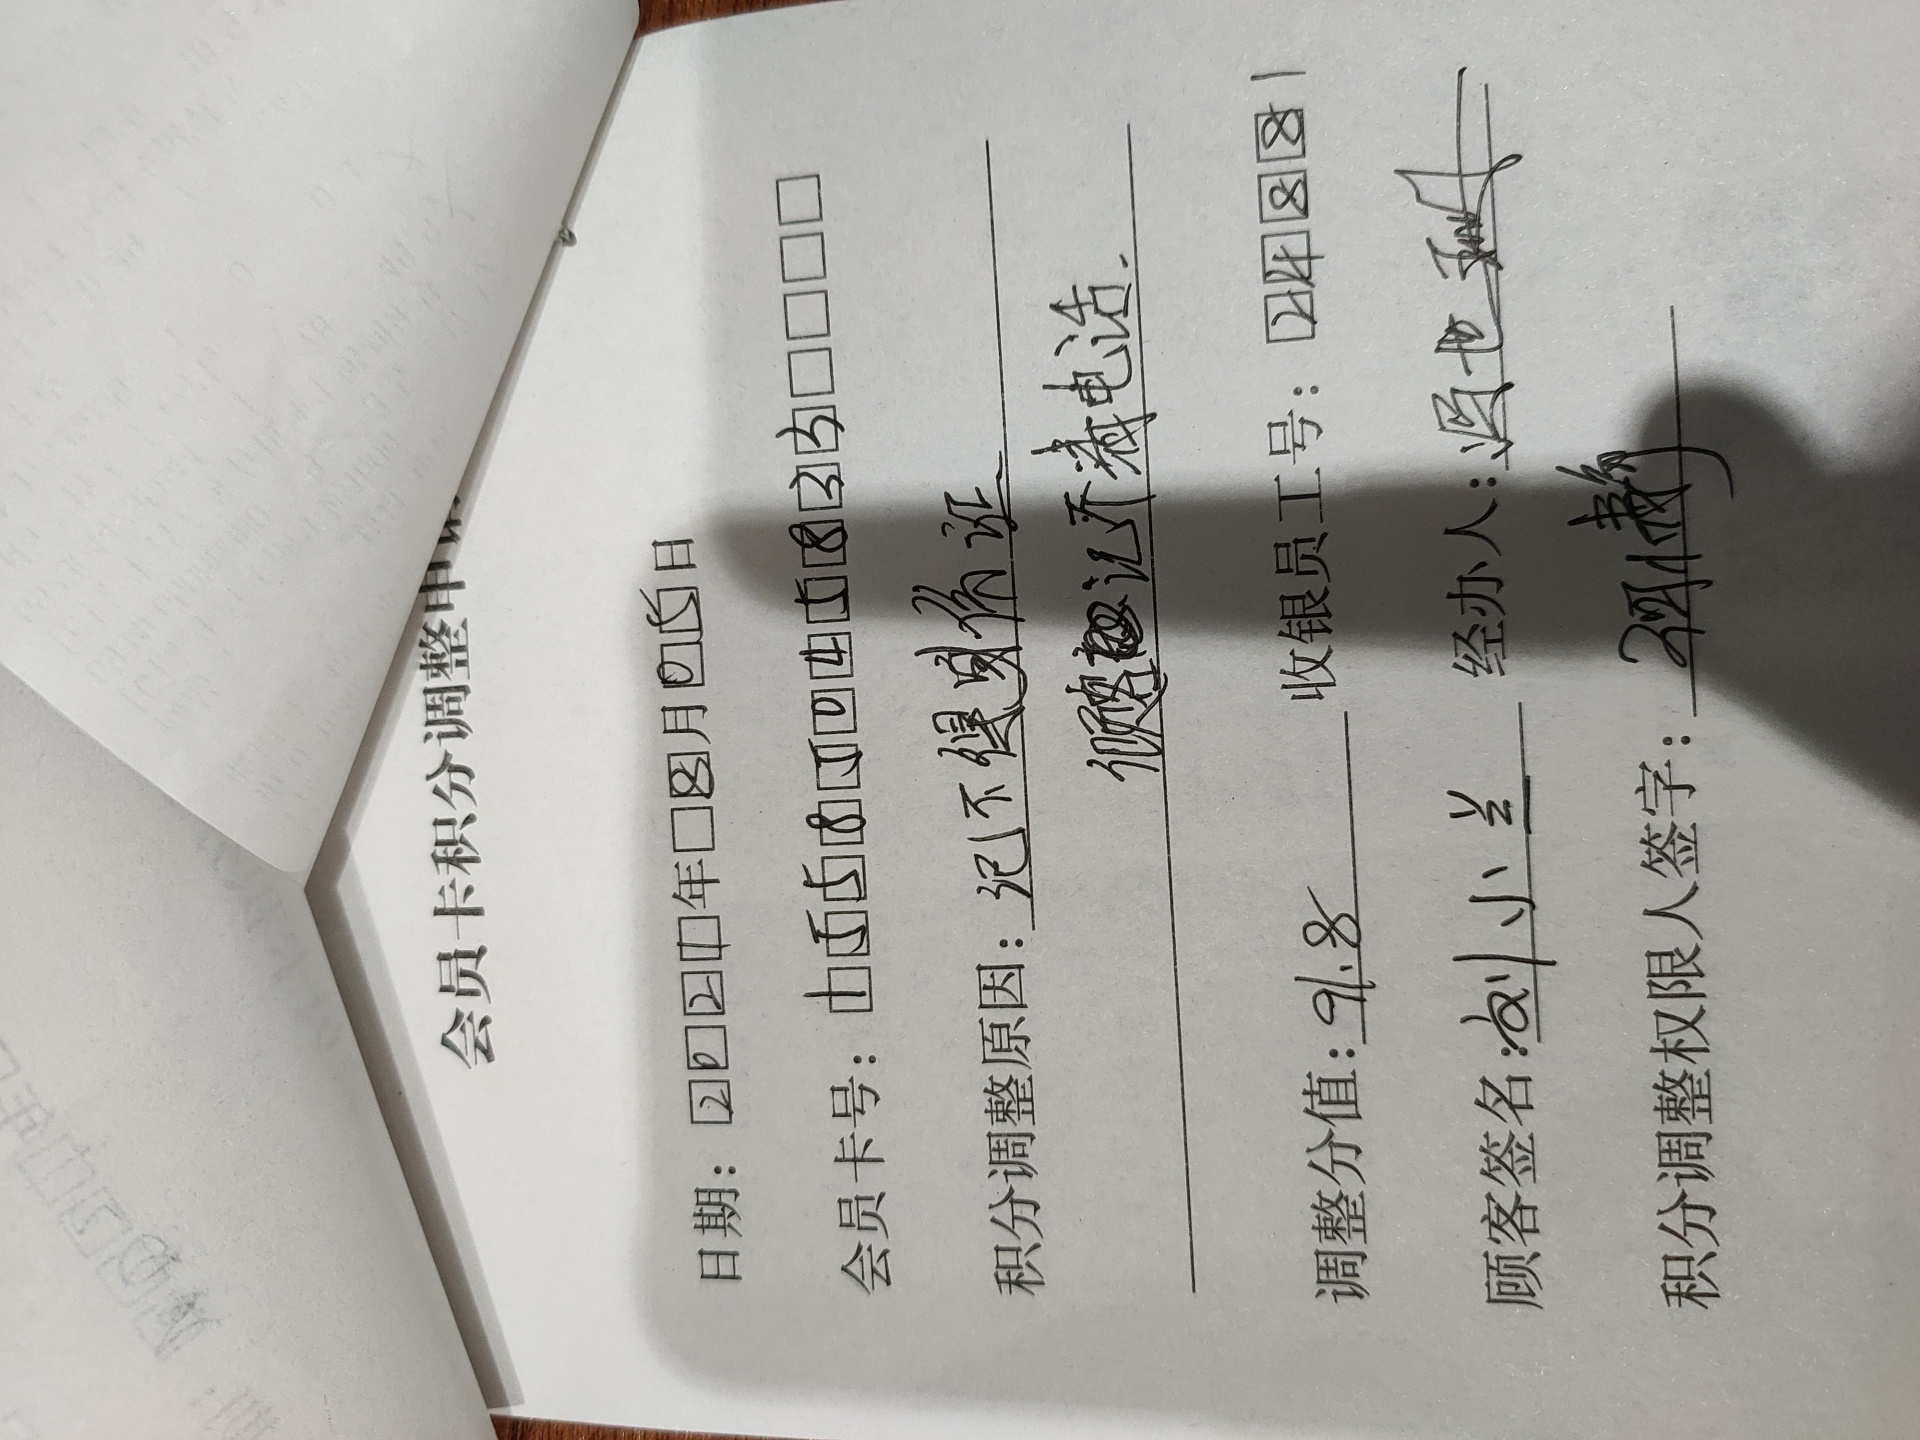 会员卡积分调整申
日期：2021年8月05日
会员卡号：
积分调整原因：记不得身份证
记不清电话.
调整分值：91.8 收银员工号：24881
顾客签名:刘小兰 经办人：
积分调整权限人签字：